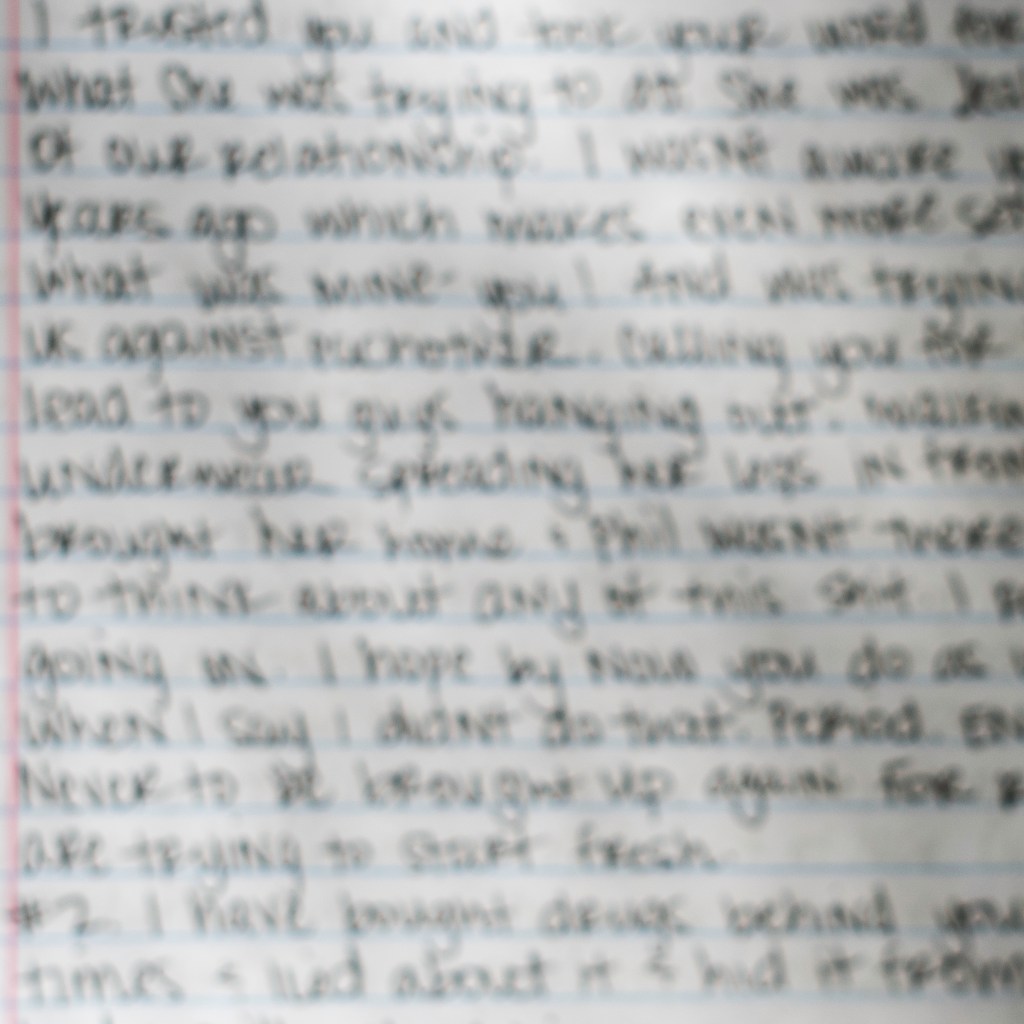 I trusted you and took your word for
what she was trying to do. She was
of our relationship. I wasn't aware
years ago which makes even more
what was mine - you! And was trying
us against eachother. Calling you for
lead to you guys hanging out.
underwear spreading her legs in front
brought her home & Phil wasn't there
to think about any of this shit I
going on. I hope by Now you do as
when I say I didn't do that. Period.
Never to be brought up again. For
are trying to start fresh.
#2 I have bought drugs behind you
times & lied about it & hid it from